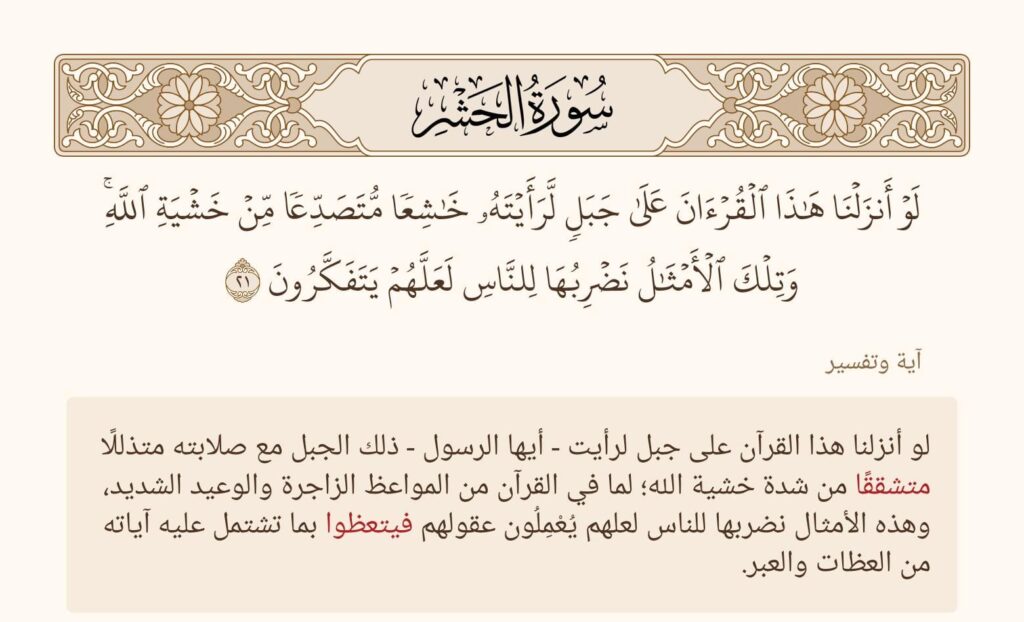 سُورَةُ الحَشْرِ
لَوْ أَنزَلْنَا هَٰذَا ٱلْقُرْءَانَ عَلَىٰ جَبَلٍ لَّرَأَيْتَهُۥ خَٰشِعًا مُّتَصَدِّعًا مِّنْ خَشْيَةِ ٱللَّهِ ۚ
وَتِلْكَ ٱلْأَمْثَٰلُ نَضْرِبُهَا لِلنَّاسِ لَعَلَّهُمْ يَتَفَكَّرُونَ ٢١
آية وتفسير
لو أنزلنا هذا القرآن على جبل لرأيت - أيها الرسول - ذلك الجبل مع صلابته متذللًا
متشققًا من شدة خشية الله؛ لما في القرآن من المواعظ الزاجرة والوعيد الشديد،
وهذه الأمثال نضربها للناس لعلهم يُعْمِلُون عقولهم فيتعظوا بما تشتمل عليه آياته
من العظات والعبر.